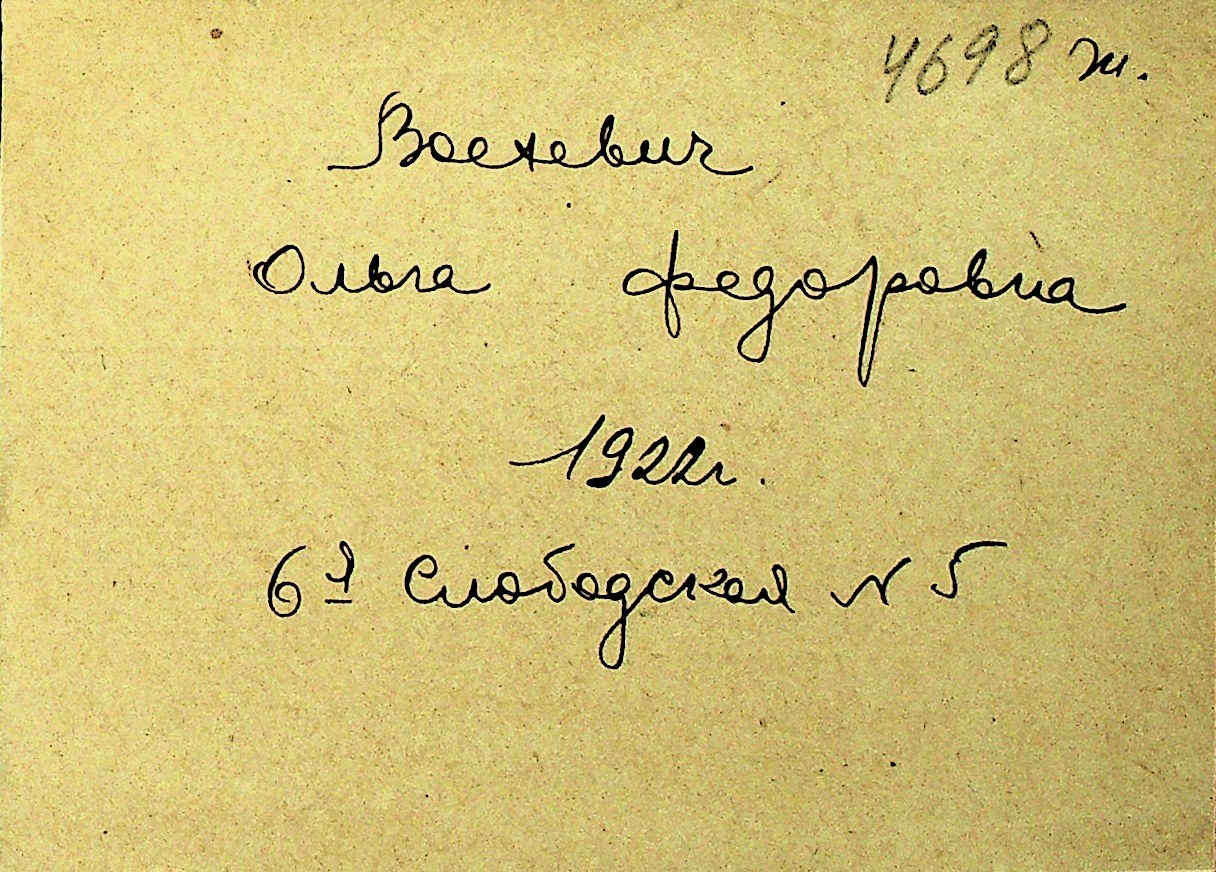 4698 т.
Воехевич
Ольга Федоровна
1922г.
6я Слободская N 5